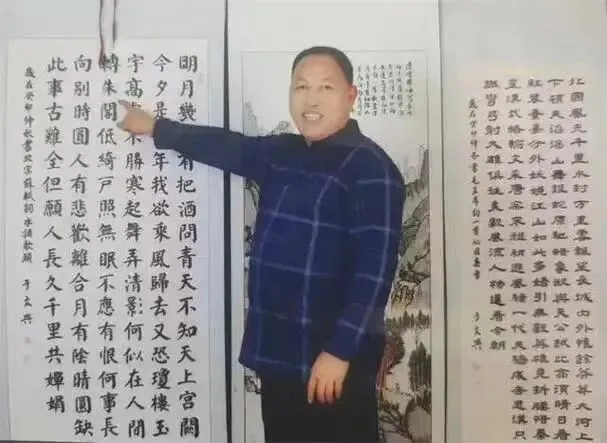 明月幾有把酒問青天不知天上宮闕
今夕是年我欲乘風歸去又恐瓊樓玉
宇高不勝寒起舞弄清影何似在人間
轉朱閣低綺戶照無眠不應有恨何事長
向別時圓人有悲歡離合月有陰晴圓缺
此事古難全但願人長久千里共嬋娟
歲在癸卯仲秋書北宋蘇軾詞水調歌頭 于文興
北國風光千里冰封万里雪飄望長城內外惟餘莽莽大河上
下頓失滔滔山舞銀蛇原馳蠟象欲與天公試比高須晴日看
紅裝素裹分外妖嬈江山如此多嬌引無數英雄競折腰惜秦
皇漢武略輸文采唐宗宋祖稍遜風騷一代天驕成吉思汗只
識彎弓射大雕俱往矣數風流人物還看今朝
歲在癸卯仲冬書毛主席詞一首沁園春雪
于文興